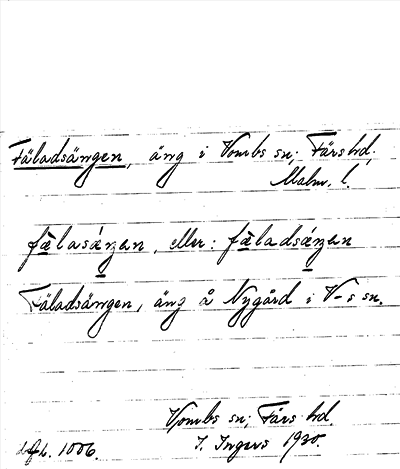 Fäladsängen, äng i Vombs sn; Färs hd;
Malm. l.
fælasáŋen, eller: fæladsáŋen
Fäladsängen, äng å Nygård i V-s sn.
Vombs sn; Färs hd.
I. Ingers 1930.
1006.